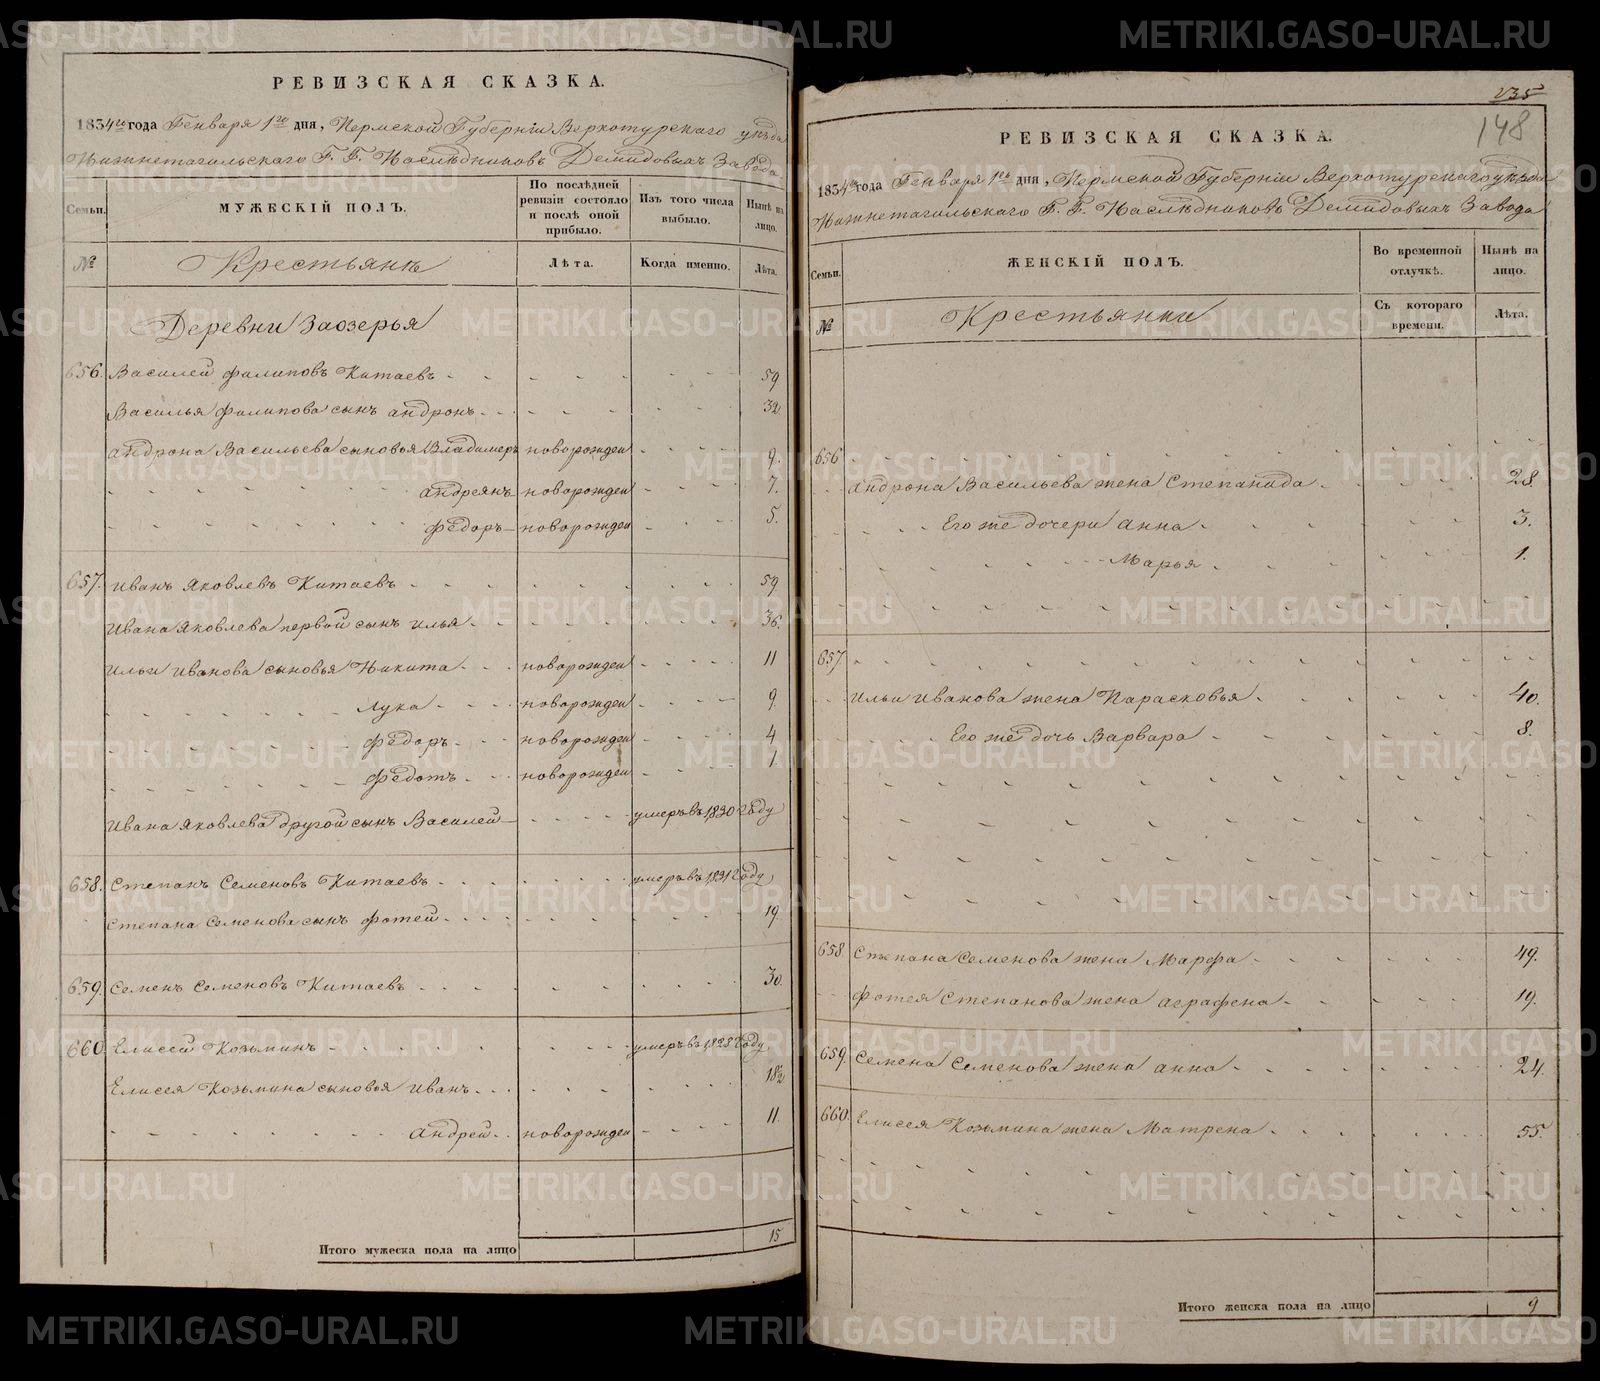 РЕВИЗСКАЯ СКАЗКА.
1834го года Генваря 1го дня, Пермской Губерніи Верхотурскаго уѣзда
Нижнетагильскаго Г. Г. Наслѣдниковъ Демидовыхъ Завода
Семьи.
МУЖЕСКІЙ ПОЛЪ.
По послѣдней ревизіи состояло и послѣ оной прибыло.
Изъ того числа выбыло.
Нынѣ на лицо.
№
Крестьянѣ
Лѣта.
Когда именно.
Лѣта.
Деревни Заозерья
656. Василей Филиповъ Китаевъ 59
Василья Филипова сынъ Андронъ 32.
Андрона Васильева сыновья Владимеръ новорожден 9.
Андреянъ новорожден 7.
Федоръ новорожден 5.
657. Иванъ Яковлевъ Китаевъ 59
Ивана Яковлева первой сынъ Илья 36.
Ильи Иванова сыновья Никита новорожден 11
Лука новорожден 9.
Федоръ новорожден 4
Федотъ новорожден 1.
Ивана Яковлева другой сынъ Василей умеръ въ 1830 году
658. Степанъ Семеновъ Китаевъ умеръ въ 1831 году
Степана Семенова сынъ Фотей 19.
659. Семенъ Семеновъ Китаевъ 30.
660. Елисей Козьминъ умеръ въ 1828 году
Елисея Козьмина сыновья Иванъ 18½
Андрей новорожден 11.
Итого мужеска пола на лицо 15
235
148
РЕВИЗСКАЯ СКАЗКА.
1834го года Генваря 1го дня, Пермской Губерніи Верхотурскаго уѣзда
Нижнетагильскаго Г. Г. Наслѣдниковъ Демидовыхъ Завода
Семьи.
ЖЕНСКІЙ ПОЛЪ.
Во временной отлучкѣ.
Нынѣ на лицо.
№
Крестьянки
Съ котораго времени.
Лѣта.
656
Андрона Васильева жена Степанида 28.
Его же дочери Анна 3.
Марья 1.
657.
Ильи Иванова жена Парасковья 40.
Его же дочь Варвара 8.
658. Степана Семенова жена Марфа 49.
Фотея Степанова жена Аграфена 19.
659. Семена Семенова жена Анна 24.
660. Елисея Козьмина жена Матрена 55.
Итого женска пола на лицо 9
METRIKI.GASO-URAL.RU